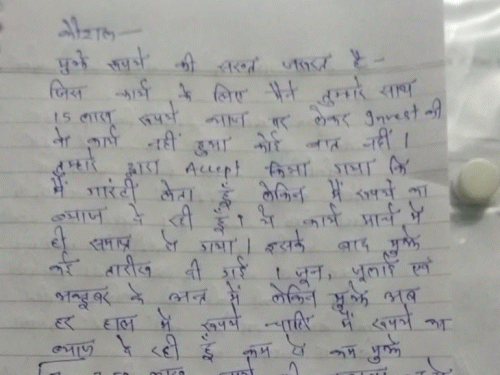 कौशल—
मुझे रूपये की सख्त जरूरत है—
जिस कार्य के लिए मैंने तुम्हारे साथ
15 लाख रूपये ब्याज पर लेकर Invest की
वो कार्य नहीं हुआ कोई बात नहीं।
तुम्हारे द्वारा Accept किया गया कि
मैं गारंटी लेता हूँ लेकिन मैं रूपये का
ब्याज दे रही हूँ। ये कार्य मार्च में
ही समाप्त हो गया। इसके बाद मुझे
कई तारीख दी गई। जून, जुलाई एवं
अक्टूबर के अन्त में लेकिन मुझे अब
हर हाल में रूपये चाहिए मैं रूपये का
ब्याज दे रही हूँ कम से कम मुझे